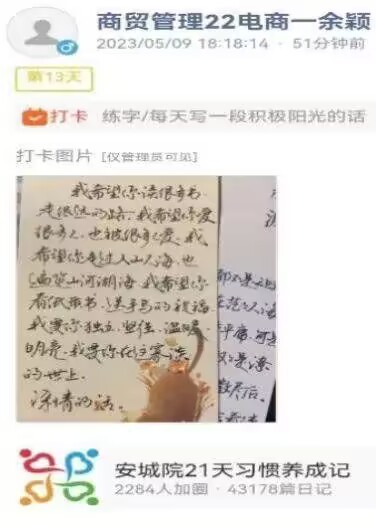 商贸管理22电商一余颖
2023/05/09 18:18:14 · 51分钟前
第13天
打卡 练字/每天写一段积极阳光的话
打卡图片 [仅管理员可见]
我希望你读很多书
走很远的路，我希望你爱
很多人，也被很多人爱，我
希望你走过人山人海，也
遍览山河湖海，我希望你
有纸质书，送手写的祝福
我要你独立，坚强，温暖
明亮，我要你在这寡淡
的世上，
深情的活。
安城院21天习惯养成记
2284人加圈 · 43178篇日记